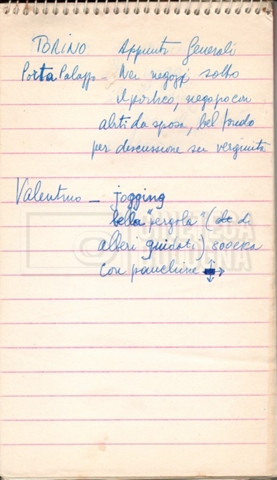 TORINO Appunti Generali
Porta Palazzo - Nei negozi sotto
il portico, negozio con
abiti da sposa, bel fondo
per discussione su verginità
Valentino - jogging
bella "pergola" (di
alberi guidati)
con panchine